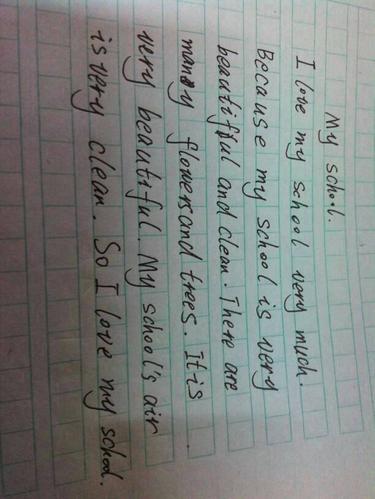 My school.
I love my school very much.
Because my school is very
beautiful and clean. There are
many flowers and trees. It is
very beautiful. My school's air
is very clean. So I love my school.